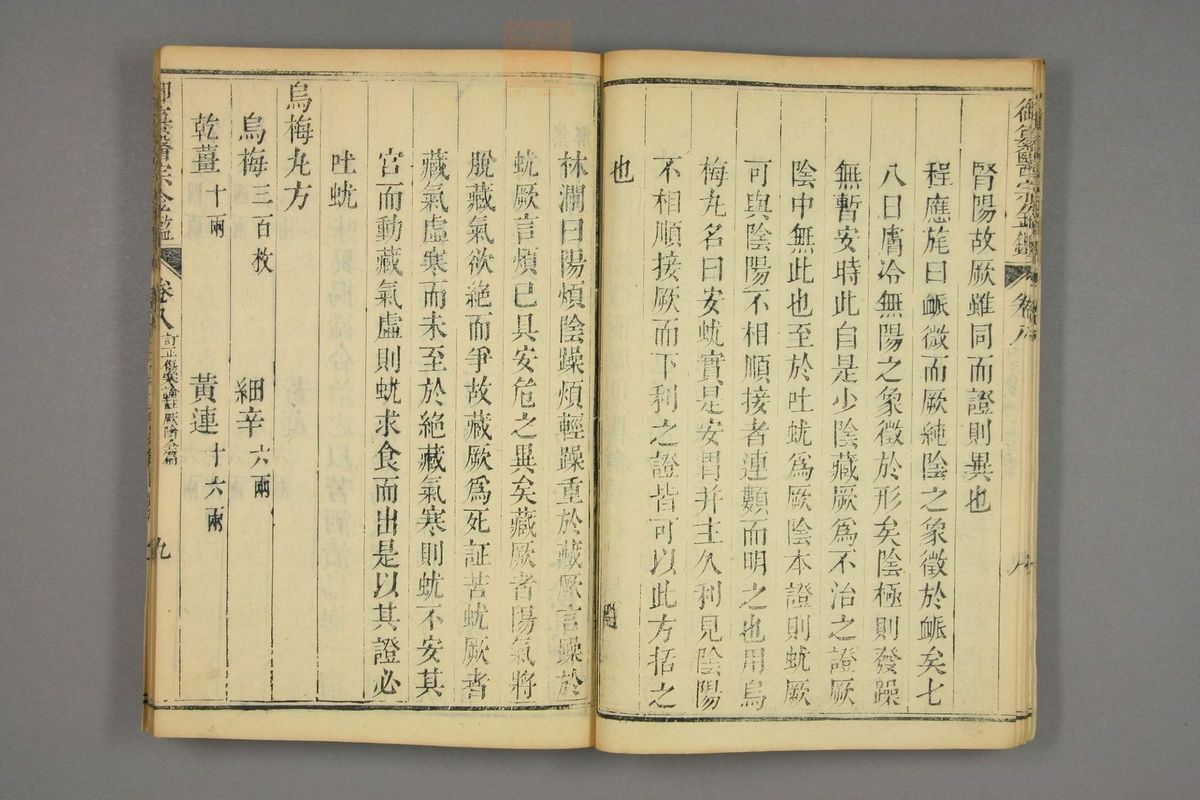 御纂醫宗金鑑 卷八
腎陽故厥雖同而證則異也
程應旄曰脈微而厥純陰之象徵於脈矣七
八日膚冷無陽之象徵於形矣陰極則發躁
無暫安時此自是少陰藏厥為不治之證厥
陰中無此也至於吐蚘為厥陰本證則蚘厥
可與陰陽不相順接者連類而明之也用烏
梅丸名曰安蚘實是安胃并主久利見陰陽
不相順接厥而下利之證皆可以此方括之
也
林瀾曰陽煩陰躁煩輕躁重於藏厥言躁於
蚘厥言煩已具安危之異矣藏厥者陽氣將
脫藏氣欲絕而爭故藏厥為死証苦蚘厥者
藏氣虛寒而未至於絕藏氣寒則蚘不安其
宮而動藏氣虛則蚘求食而出是以其證必
吐蚘
烏梅丸方
烏梅三百枚 細辛六兩
乾薑十兩 黃連十六兩
御纂醫宗金鑑 卷八 訂正傷寒論註厥陰全篇 九